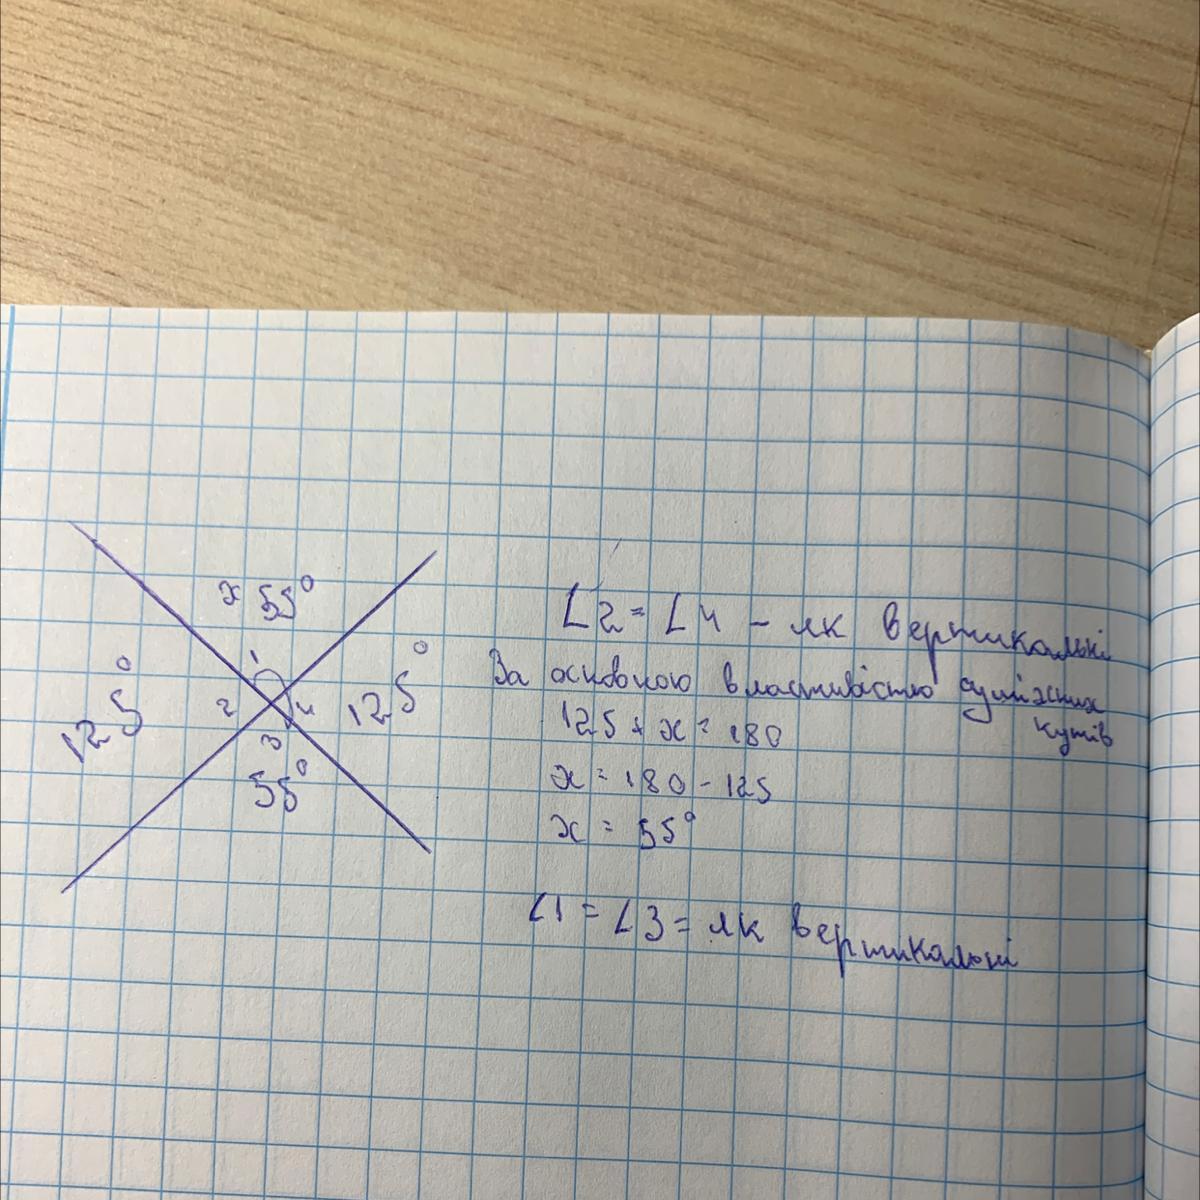 x 55°
1
125°
2
4
125°
3
55°
∠2 = ∠4 - як вертикальні
За основною властивістю суміжних
кутів
125 + x = 180
x = 180 - 125
x = 55°
∠1 = ∠3 = як вертикальні